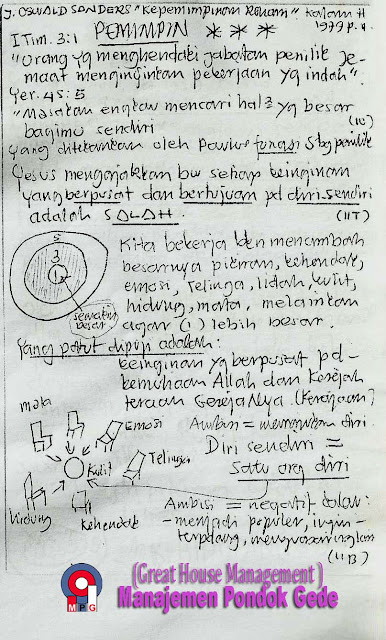 J. OSWALD SANDERS "Kepemimpinan Rohani" Kalam H
1979 p.
PEMIMPIN ***
I Tim. 3:1
"Orang yg menghendaki jabatan penilik Je-
maat menginginkan pekerjaan yg indah".
Yer. 45:5
"Masakan engkau mencari hal2 yg besar
bagimu sendiri
Yang ditekankan oleh Paulus fungsi sbg penilik
Yesus mengajarkan bw setiap keinginan
yang berpusat dan bertujuan pd diri sendiri
adalah SALAH.
5
3
1
sewaktu
besar
Kita bekerja bkn menambah
besarnya pikiran, kehendak,
emosi, telinga, lidah, kulit,
hidung, mata, melainkan
agar (1) lebih besar.
Yang patut dipuji adalah:
keinginan yg berpusat pd-
kemuliaan Allah dan Kesejah
teraan GerejaNya. (Kerajaan)
mata
Emosi
Telinga
Kulit
hidung
Kehendak
Ambisi = diri.
Diri sendiri =
satu org diri
Ambisi = negatif dalam:
- menjadi populer, ingin
terpandang,
(11B)
MPG
(Great House Management)
Manajemen Pondok Gede